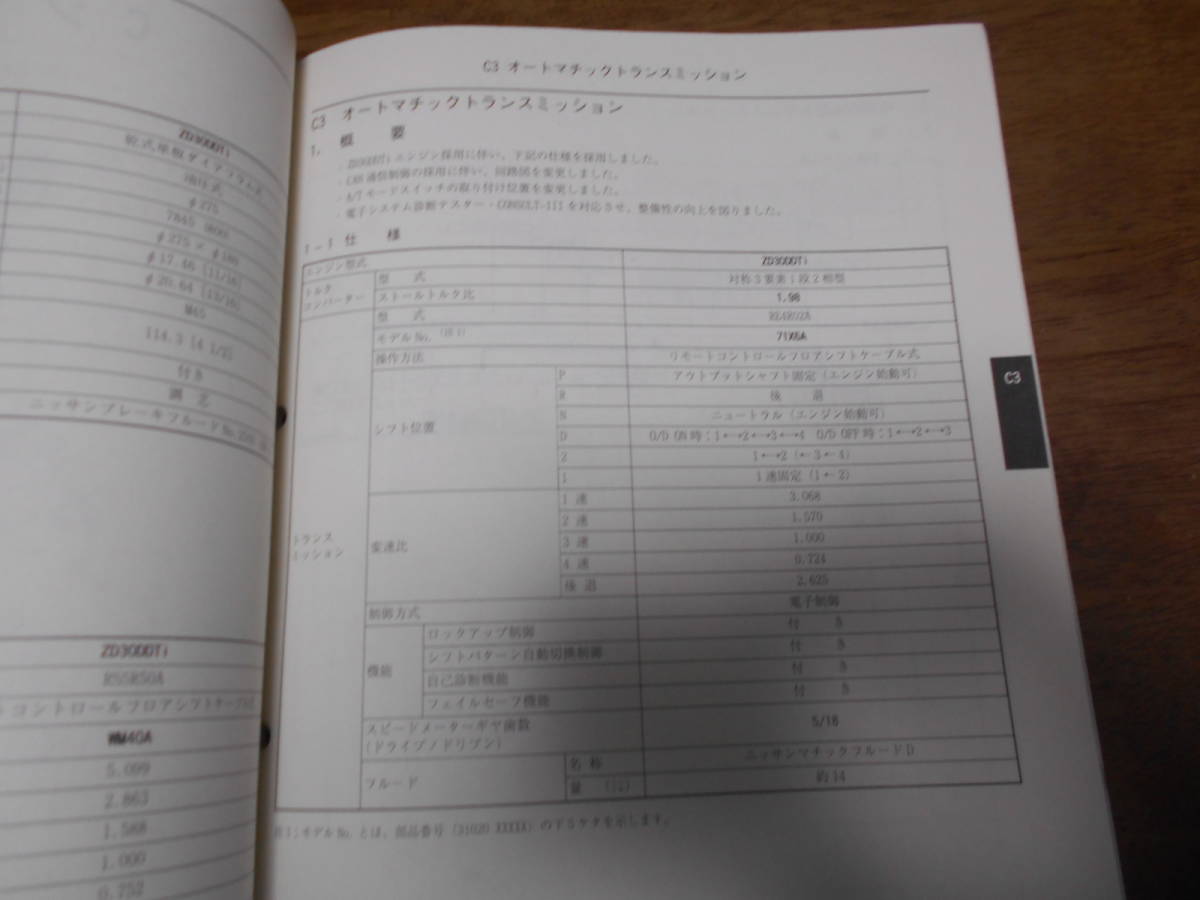 ZD30DDTi
乾式単板ダイアフラム式
油圧式
φ275
φ275 × φ180
φ17.46 [11/16]
φ20.64 [13/16]
M45
114.3 [4 1/2]
付き
ニッサンブレーキフルード No.2500
ZD30DDTi
R55R50A
コントロールフロアシフトケーブル式
WM40A
5.099
2.863
1.588
1.000
0.752
C3 オートマチックトランスミッション
C3 オートマチックトランスミッション
1. 概 要
・ZD30DDTi エンジン採用に伴い、下記の仕様を採用しました。
・CAN 通信制御の採用に伴い、回路図を変更しました。
・A/T モードスイッチの取り付け位置を変更しました。
・電子システム診断テスター・CONSULT-III を対応させ、整備性の向上を図りました。
1-1 仕 様
エンジン型式 ZD30DDTi
トルクコンバーター 型 式 対称3要素1段2相型
ストールトルク比 1.98
型 式 RE4R02A
モデル No. (注1) 71X6A
操作方法 リモートコントロールフロアシフトケーブル式
シフト位置 P アウトプットシャフト固定（エンジン始動可）
R 後 退
N ニュートラル（エンジン始動可）
D O/D ON時：1←→2←→3←→4 O/D OFF時：1←→2←→3
2 1←→2（←3←4）
1 1速固定（1←2）
トランスミッション 変速比 1 速 3.068
2 速 1.570
3 速 1.000
4 速 0.724
後 退 2.625
制御方式 電子制御
機能 ロックアップ制御 付 き
シフトパターン自動切換制御 付 き
自己診断機能 付 き
フェイルセーフ機能 付 き
スピードメーターギヤ歯数 5/18
（ドライブ/ドリブン）
フルード 名 称 ニッサンマチックフルードD
量 (ℓ) 約14
注1：モデル No. とは、部品番号（31020 XXXXX）の下5ケタを示します。
C3